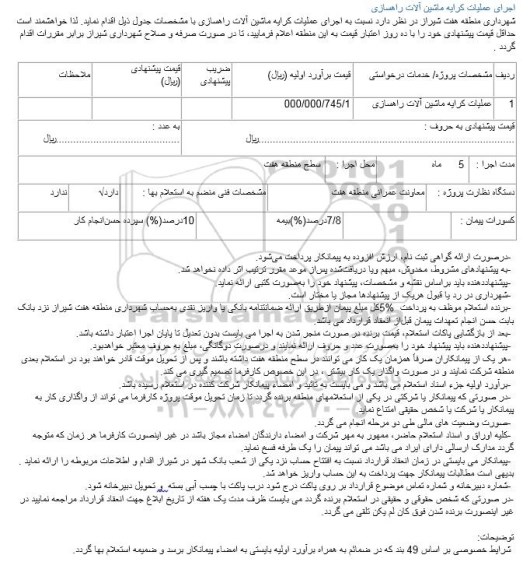 اجرای عملیات کرایه ماشین آلات راهسازی
شهرداری منطقه هفت شیراز در نظر دارد نسبت به اجرای عملیات کرایه ماشین آلات راهسازی با مشخصات جدول ذیل اقدام نماید. لذا خواهشمند است
حداقل قیمت پیشنهادی خود را با ده روز اعتبار قیمت به این منطقه اعلام فرمایید، تا در صورت صرفه و صلاح شهرداری شیراز برابر مقررات اقدام
گردد .
ردیف مشخصات پروژه/ خدمات درخواستی قیمت برآورد اولیه (ریال) ضریب پیشنهادی قیمت پیشنهادی (ریال) ملاحظات
1 عملیات کرایه ماشین آلات راهسازی 000/000/745/1
قیمت پیشنهادی به حروف : ریال به عدد : ریال
مدت اجرا : 5 ماه محل اجرا : سطح منطقه هفت
دستگاه نظارت پروژه : معاونت عمرانی منطقه هفت مشخصات فنی منضم به استعلام بها : دارد√ ندارد
کسورات پیمان : 7/8درصد(%)بیمه 10درصد(%) سپرده حسن‌انجام کار
-درصورت ارائه گواهی ثبت نام، ارزش افزوده به پیمانکار پرداخت می‌شود.
-به پیشنهادهای مشروط، مخدوش، مبهم ویا دریافت‌شده پس‌از موعد مقرر ترتیب اثر داده نخواهد شد.
-پیشنهاددهنده باید براساس نقشه و مشخصات، پیشنهاد خود را به‌صورت کتبی ارائه نماید.
-شهرداری در رد یا قبول هریک از پیشنهادها مجاز یا مختار است.
-برنده استعلام موظف به پرداخت 5%کل مبلغ پیمان ازطریق ارائه ضمانتنامه بانکی یا واریز نقدی به‌حساب شهرداری منطقه هفت شیراز نزد بانک
بابت حسن انجام تعهدات پیمان قبل‌از انعقاد قرارداد می باشد.
-بعد از بازگشایی پاکات استعلام، قیمت برنده در صورت منجر شدن به اجرا می بایست بدون تعدیل تا پایان اجرا اعتبار داشته باشد.
-پیشنهاددهنده باید پیشنهاد خود را به‌صورت عدد و حروف ارائه نمایند و درصورت دوگانگی، مبلغ به حروف معتبر خواهدبود.
-هر یک از پیمانکاران صرفاً همزمان یک کار می توانند در سطح منطقه هفت داشته باشند و پس از تحویل موقت قادر خواهند بود در استعلام بعدی
منطقه شرکت نمایند و در صورت واگذار یک کار بیشتر، در این خصوص کارفرما تصمیم گیری می کند.
-برآورد اولیه جزء اسناد استعلام می باشد و می بایست به تائید و امضاء پیمانکار شرکت کننده در استعلام رسیده باشد.
-در صورتی که پیمانکار یا شرکتی در یکی از استعلامهای منطقه برنده گردد تا زمان تحویل موقت پروژه کارفرما می تواند از واگذاری کار به
پیمانکار یا شرکت یا شخص حقیقی امتناع نماید.
-صورت وضعیت های مالی طی دو مرحله انجام می گردد.
-کلیه اوراق و اسناد استعلام حاضر، ممهور به مهر شرکت و امضاء دارندگان امضاء مجاز باشد در غیر اینصورت کارفرما هر زمان که متوجه
گردد مدارک ارسالی دارای ایراد می باشد می تواند پیمان را یک طرفه فسخ نماید.
-پیمانکار می بایستی در زمان انعقاد قرارداد نسبت به افتتاح حساب نزد یکی از شعب بانک شهر در شیراز اقدام و اطلاعات مربوطه را ارائه نماید .
بدیهی است مطالبات پیمانکار جهت پرداخت به این حساب واریز خواهد شد.
-شماره دبیرخانه و شماره تماس موضوع قرارداد بر روی پاکت درج شود درب پاکت با چسب آبی بسته و تحویل دبیرخانه شود.
-در صورتی که شخص حقوقی و حقیقی در استعلام برنده گردد می بایست ظرف مدت یک هفته از تاریخ ابلاغ جهت انعقاد قرارداد مراجعه نمایید در
غیر اینصورت برنده شدن فوق کان لم یکن تلقی می گردد.
توضیحات:
شرایط خصوصی بر اساس 49 بند که در ضمائم به همراه برآورد اولیه بایستی به امضاء پیمانکار برسد و ضمیمه استعلام بها گردد.